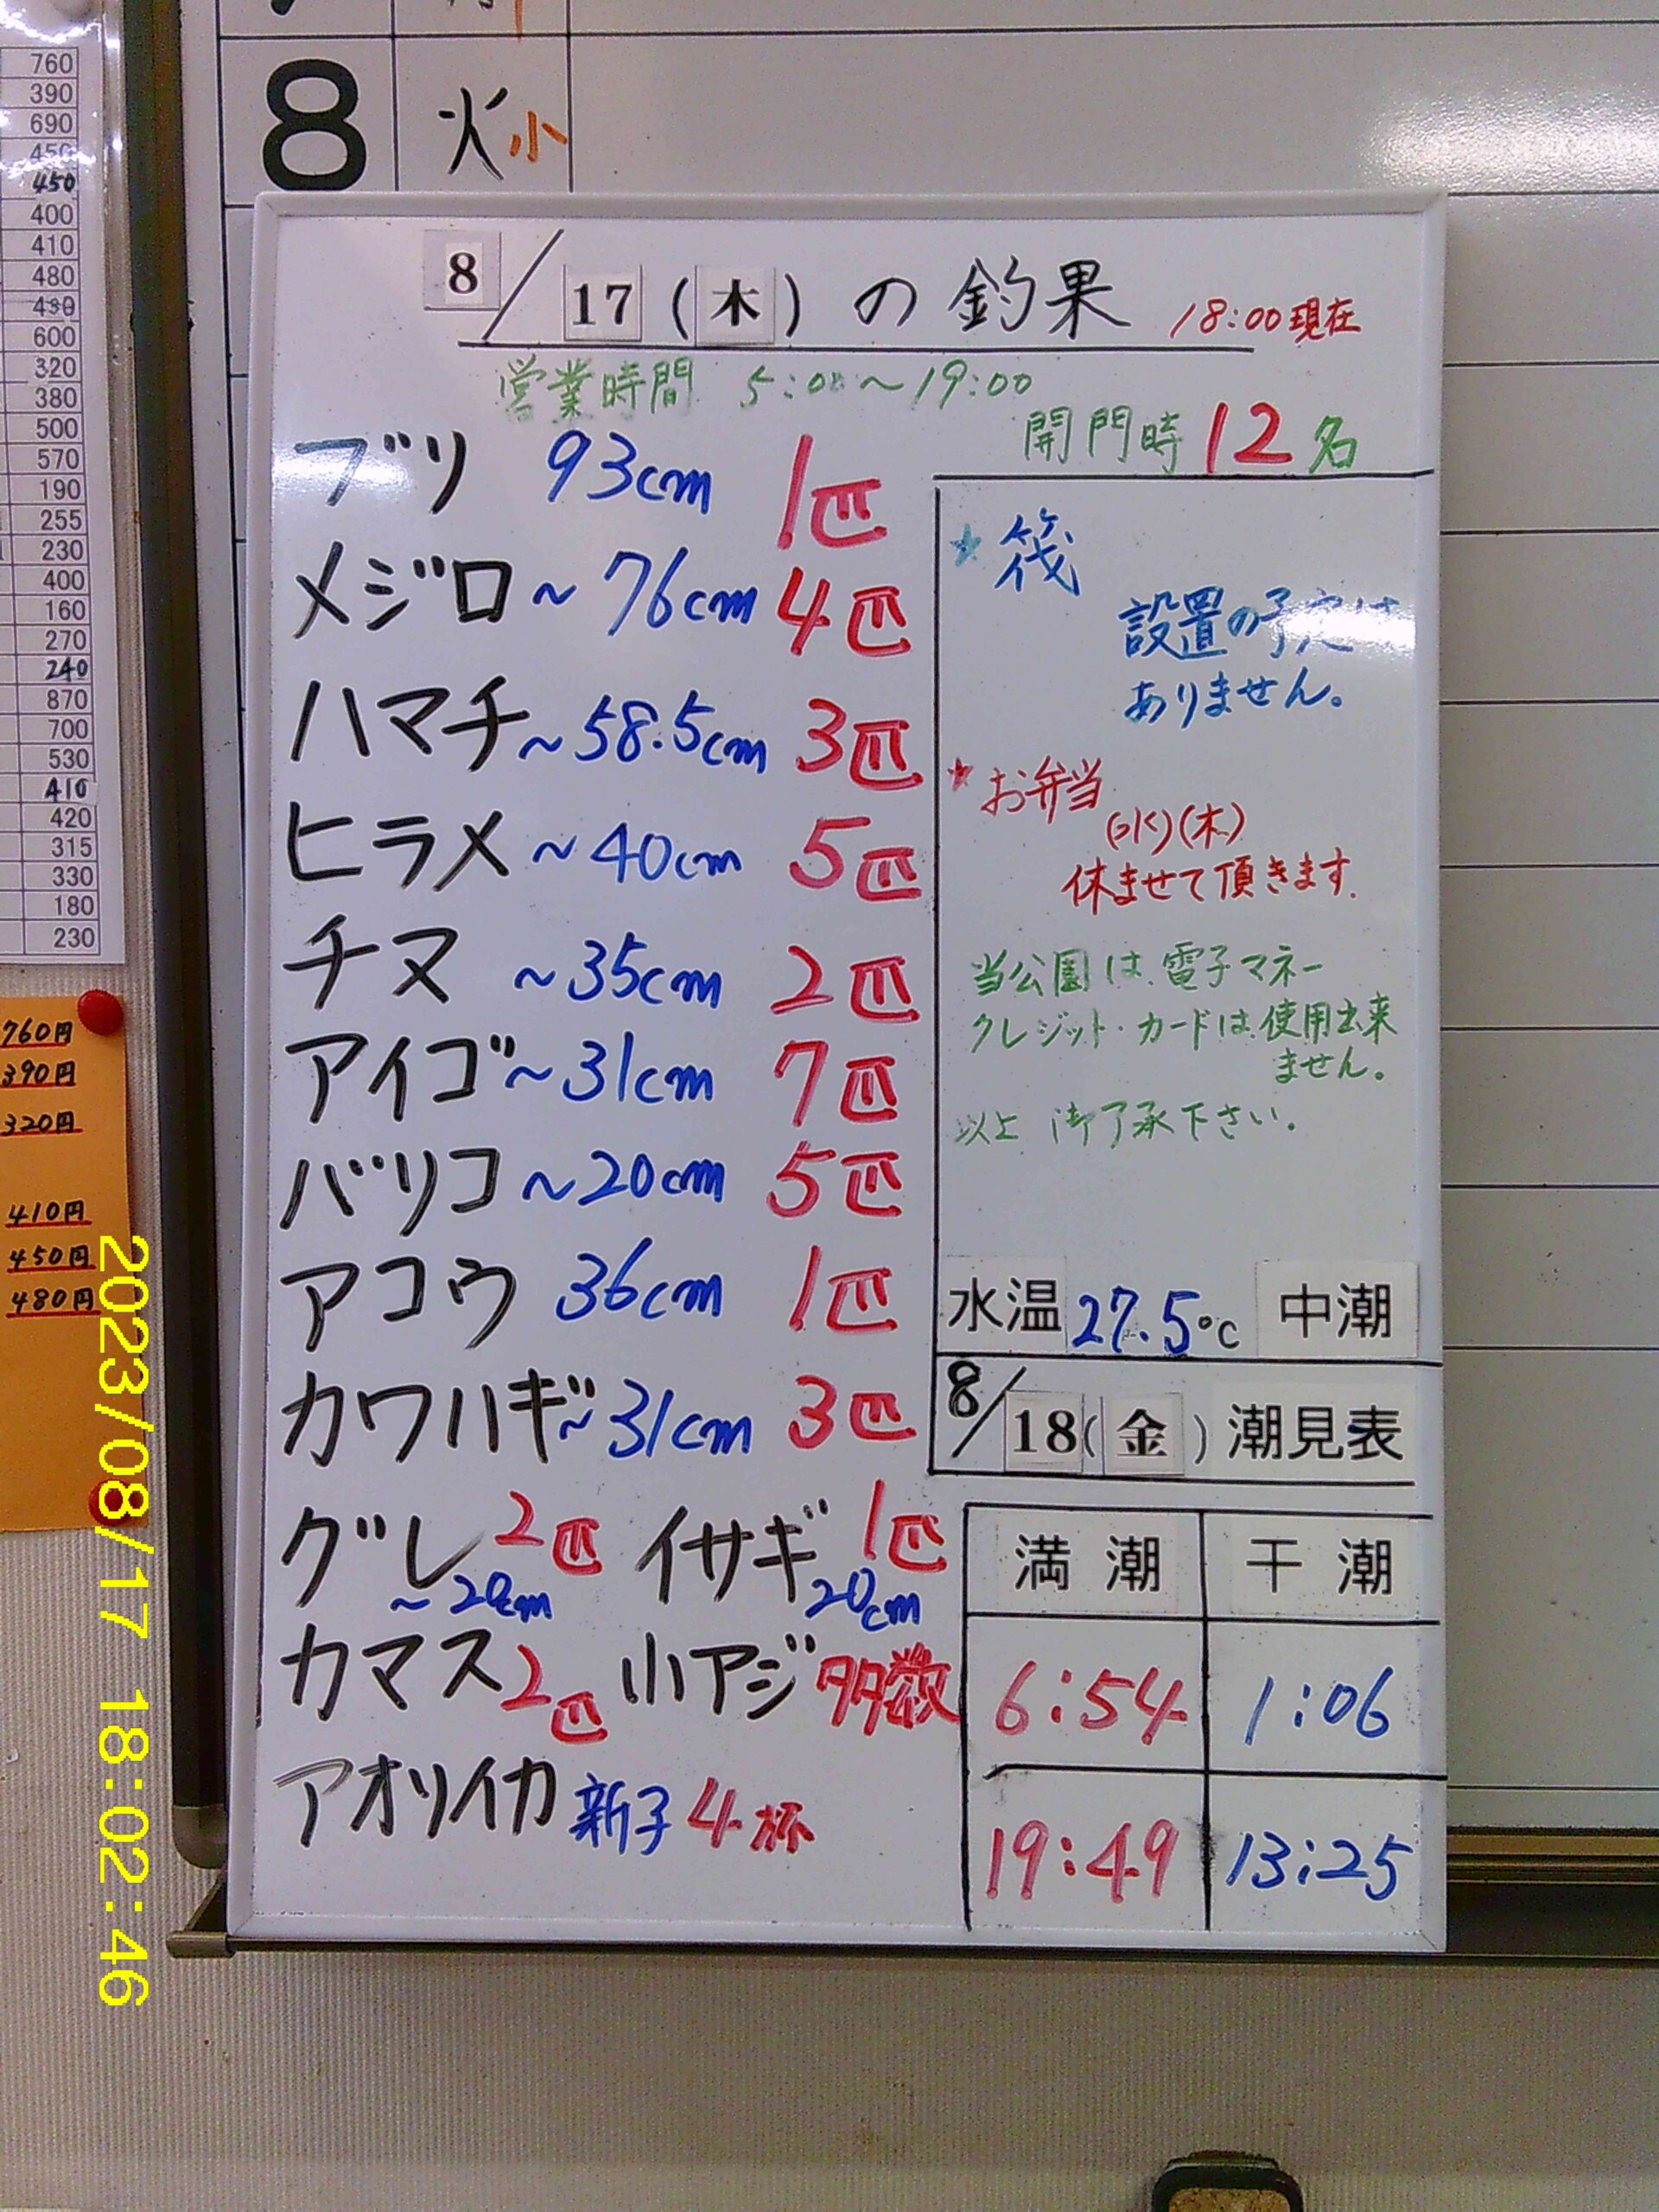 760
390
690
450
450
400
410
480
430
600
320
380
500
570
190
255
230
400
160
270
240
870
700
530
410
420
315
330
180
230
760円
390円
320円
410円
450円
480円
8 火 小
8/17(木)の釣果 18:00現在
営業時間 5:00~19:00
開門時12名
ブリ 93cm 1匹
メジロ~76cm 4匹
ハマチ~58.5cm 3匹
ヒラメ~40cm 5匹
チヌ ~35cm 2匹
アイゴ~31cm 7匹
バリコ~20cm 5匹
アコウ 36cm 1匹
カワハギ~31cm 3匹
グレ 2匹 イサギ 1匹
~20cm 20cm
カマス2匹 小アジ多数
アオリイカ 新子 4杯
★筏
設置の予定は
ありません。
★お弁当
(水)(木)
休ませて頂きます.
当公園は、電子マネー
クレジット・カードは、使用出来
ません。
以上 御了承下さい。
水温27.5℃ 中潮
8/18(金)潮見表
満潮 干潮
6:54 1:06
19:49 13:25
2023/08/17 18:02:46